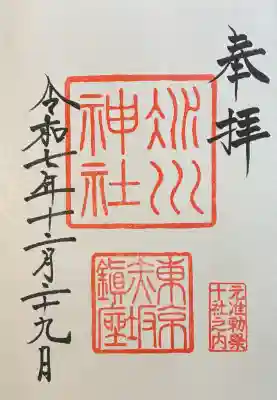 奉拝
氷川
神社
元准勅祭
十社之内
東京
赤坂
鎮座
令和七年十二月二十九日